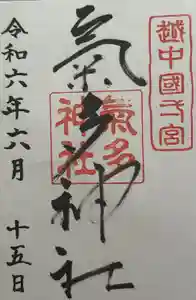 越中國一宮
氣多神社
氣多神社
令和六年六月 十五日